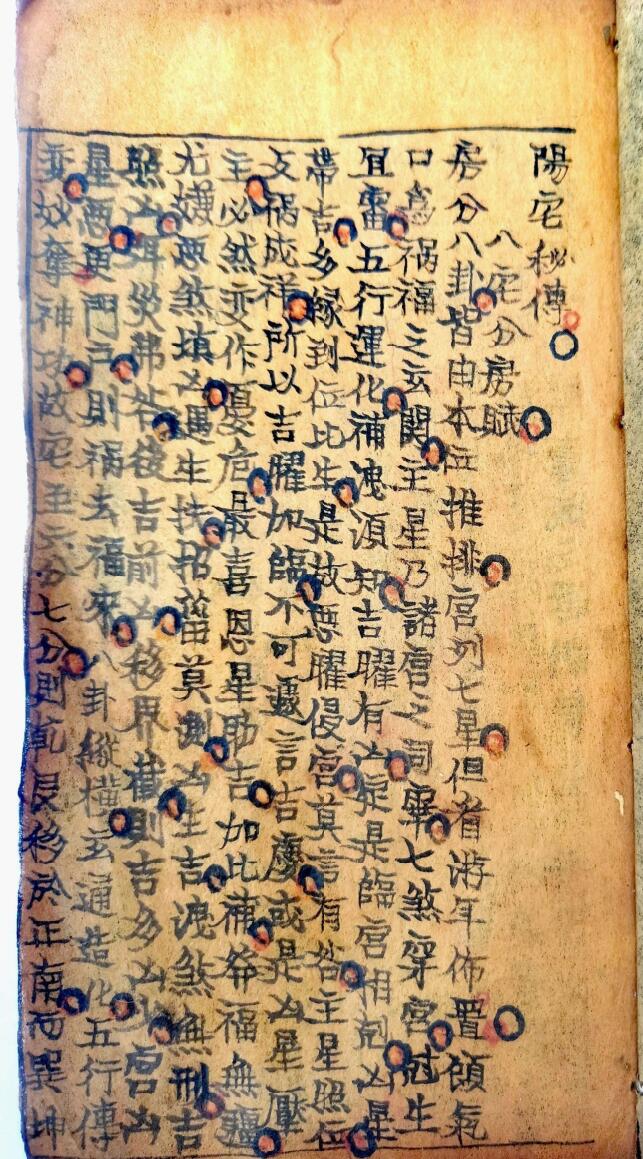 陽宅秘傳
八宅分房賦
房分八卦皆由本位推排宮列七星但看游年佈置傾氣
口為禍福之玄関主星乃諸宮之司畢七煞穿宮尅生
宜審五行運化補洩須知吉曜有凶定是臨宮相剋凶星
帶吉多緣到位比生是故惡曜侵宮莫言有咎主星照位
反禍成祥所以吉曜加臨不可遽言吉慶或是凶星壓
主必然变作憂危最喜恩星助吉加比補爺福無疆
尤嫌惡煞填凶遇生扶招菑莫測凶生吉洩煞無刑吉
照凶兮災弗咎後吉前凶移界截則吉多凶少宮凶
星惡更門戶則禍去福來八卦縱橫玄通造化五行傳
变妙奪神功故宅五六分七分則乾艮移於正南而巽坤